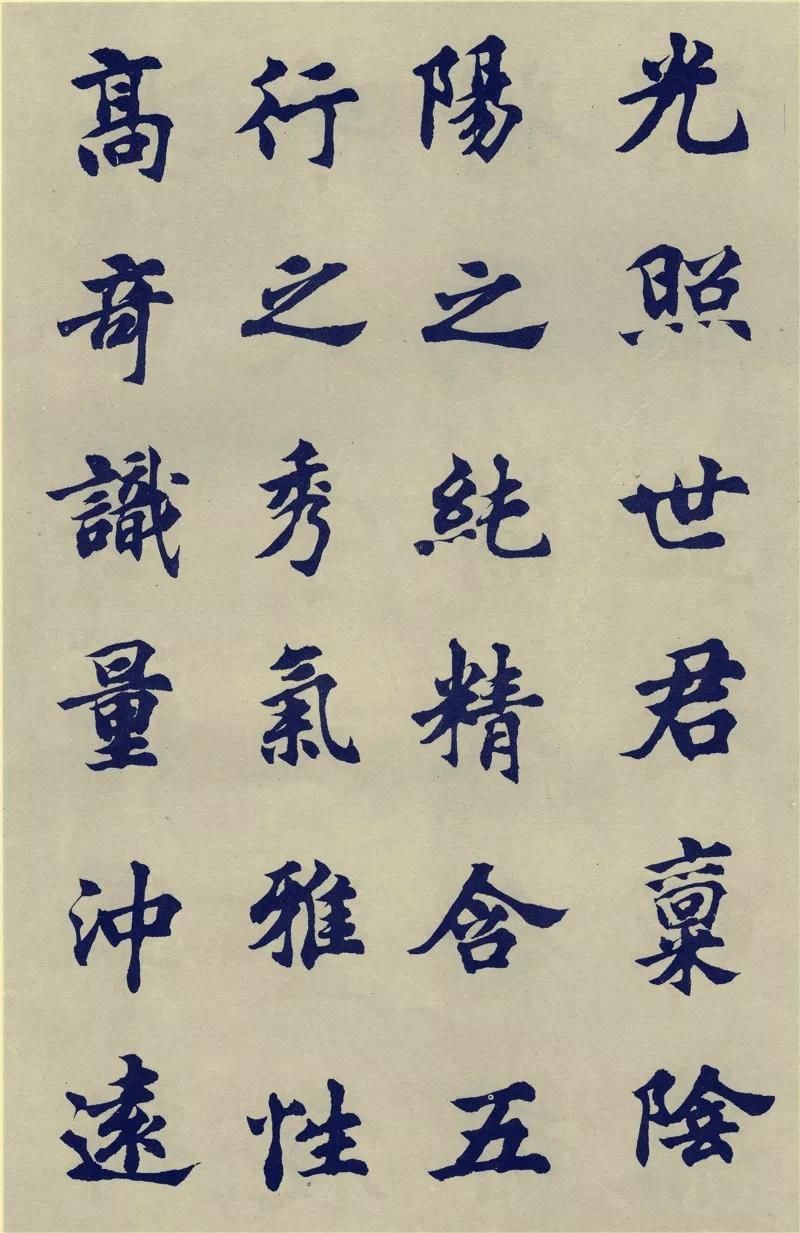 光照世君稟陰
陽之純精含五
行之秀氣雅性
高奇識量沖遠